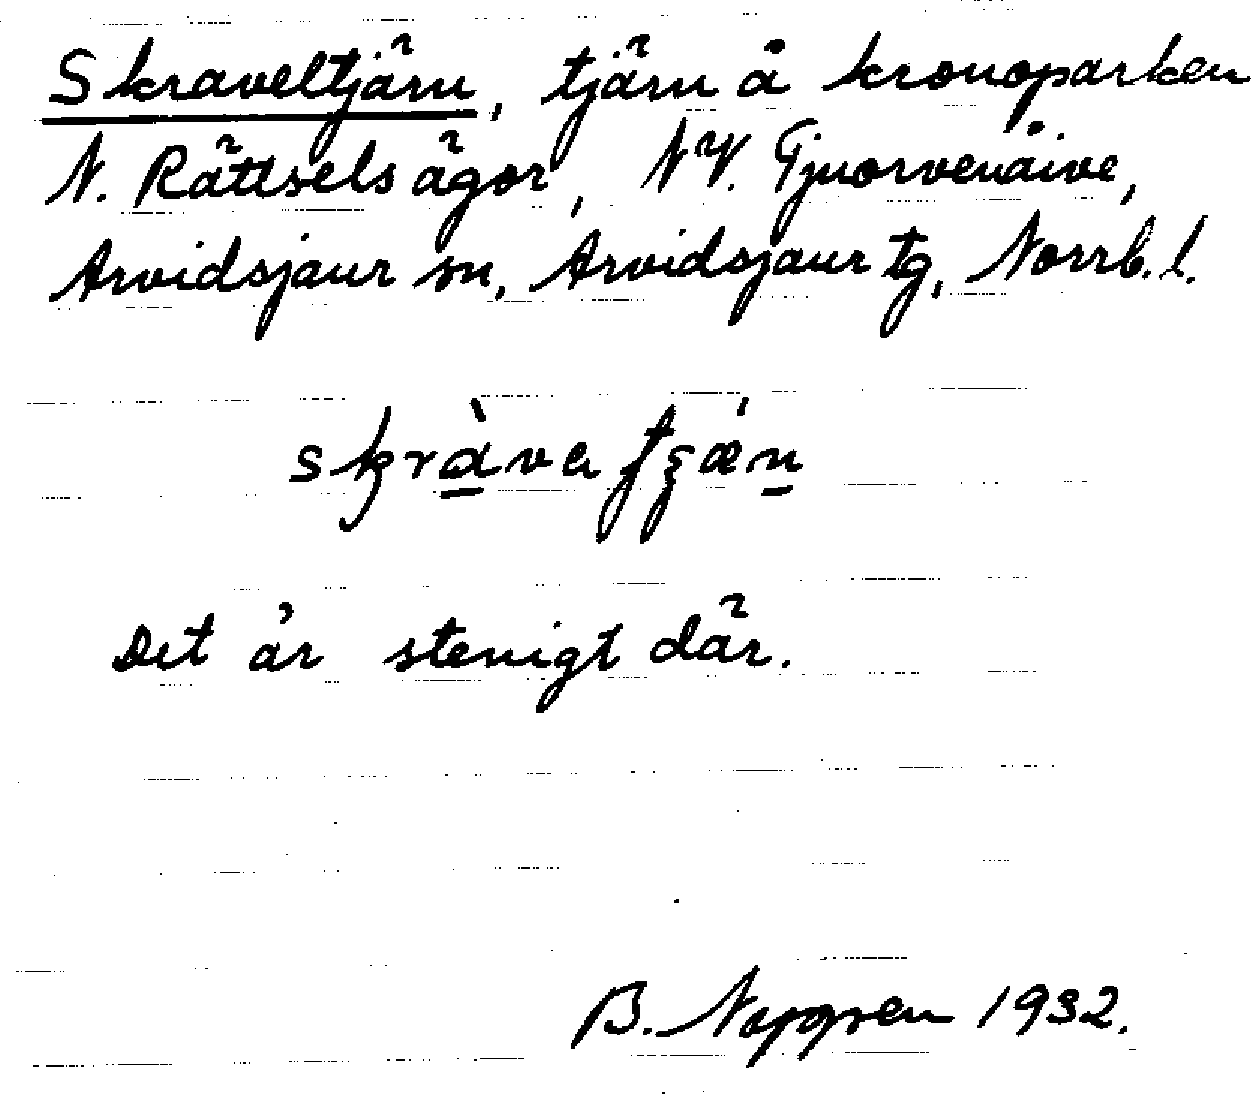 Skraveltjärn, tjärn å kronoparken
N. Rättsels ägor, NV. Tjuorvenåive,
Arvidsjaur sn, Arvidsjaur tg, Norrb. l.
Det är stenigt där.
B. 1932.